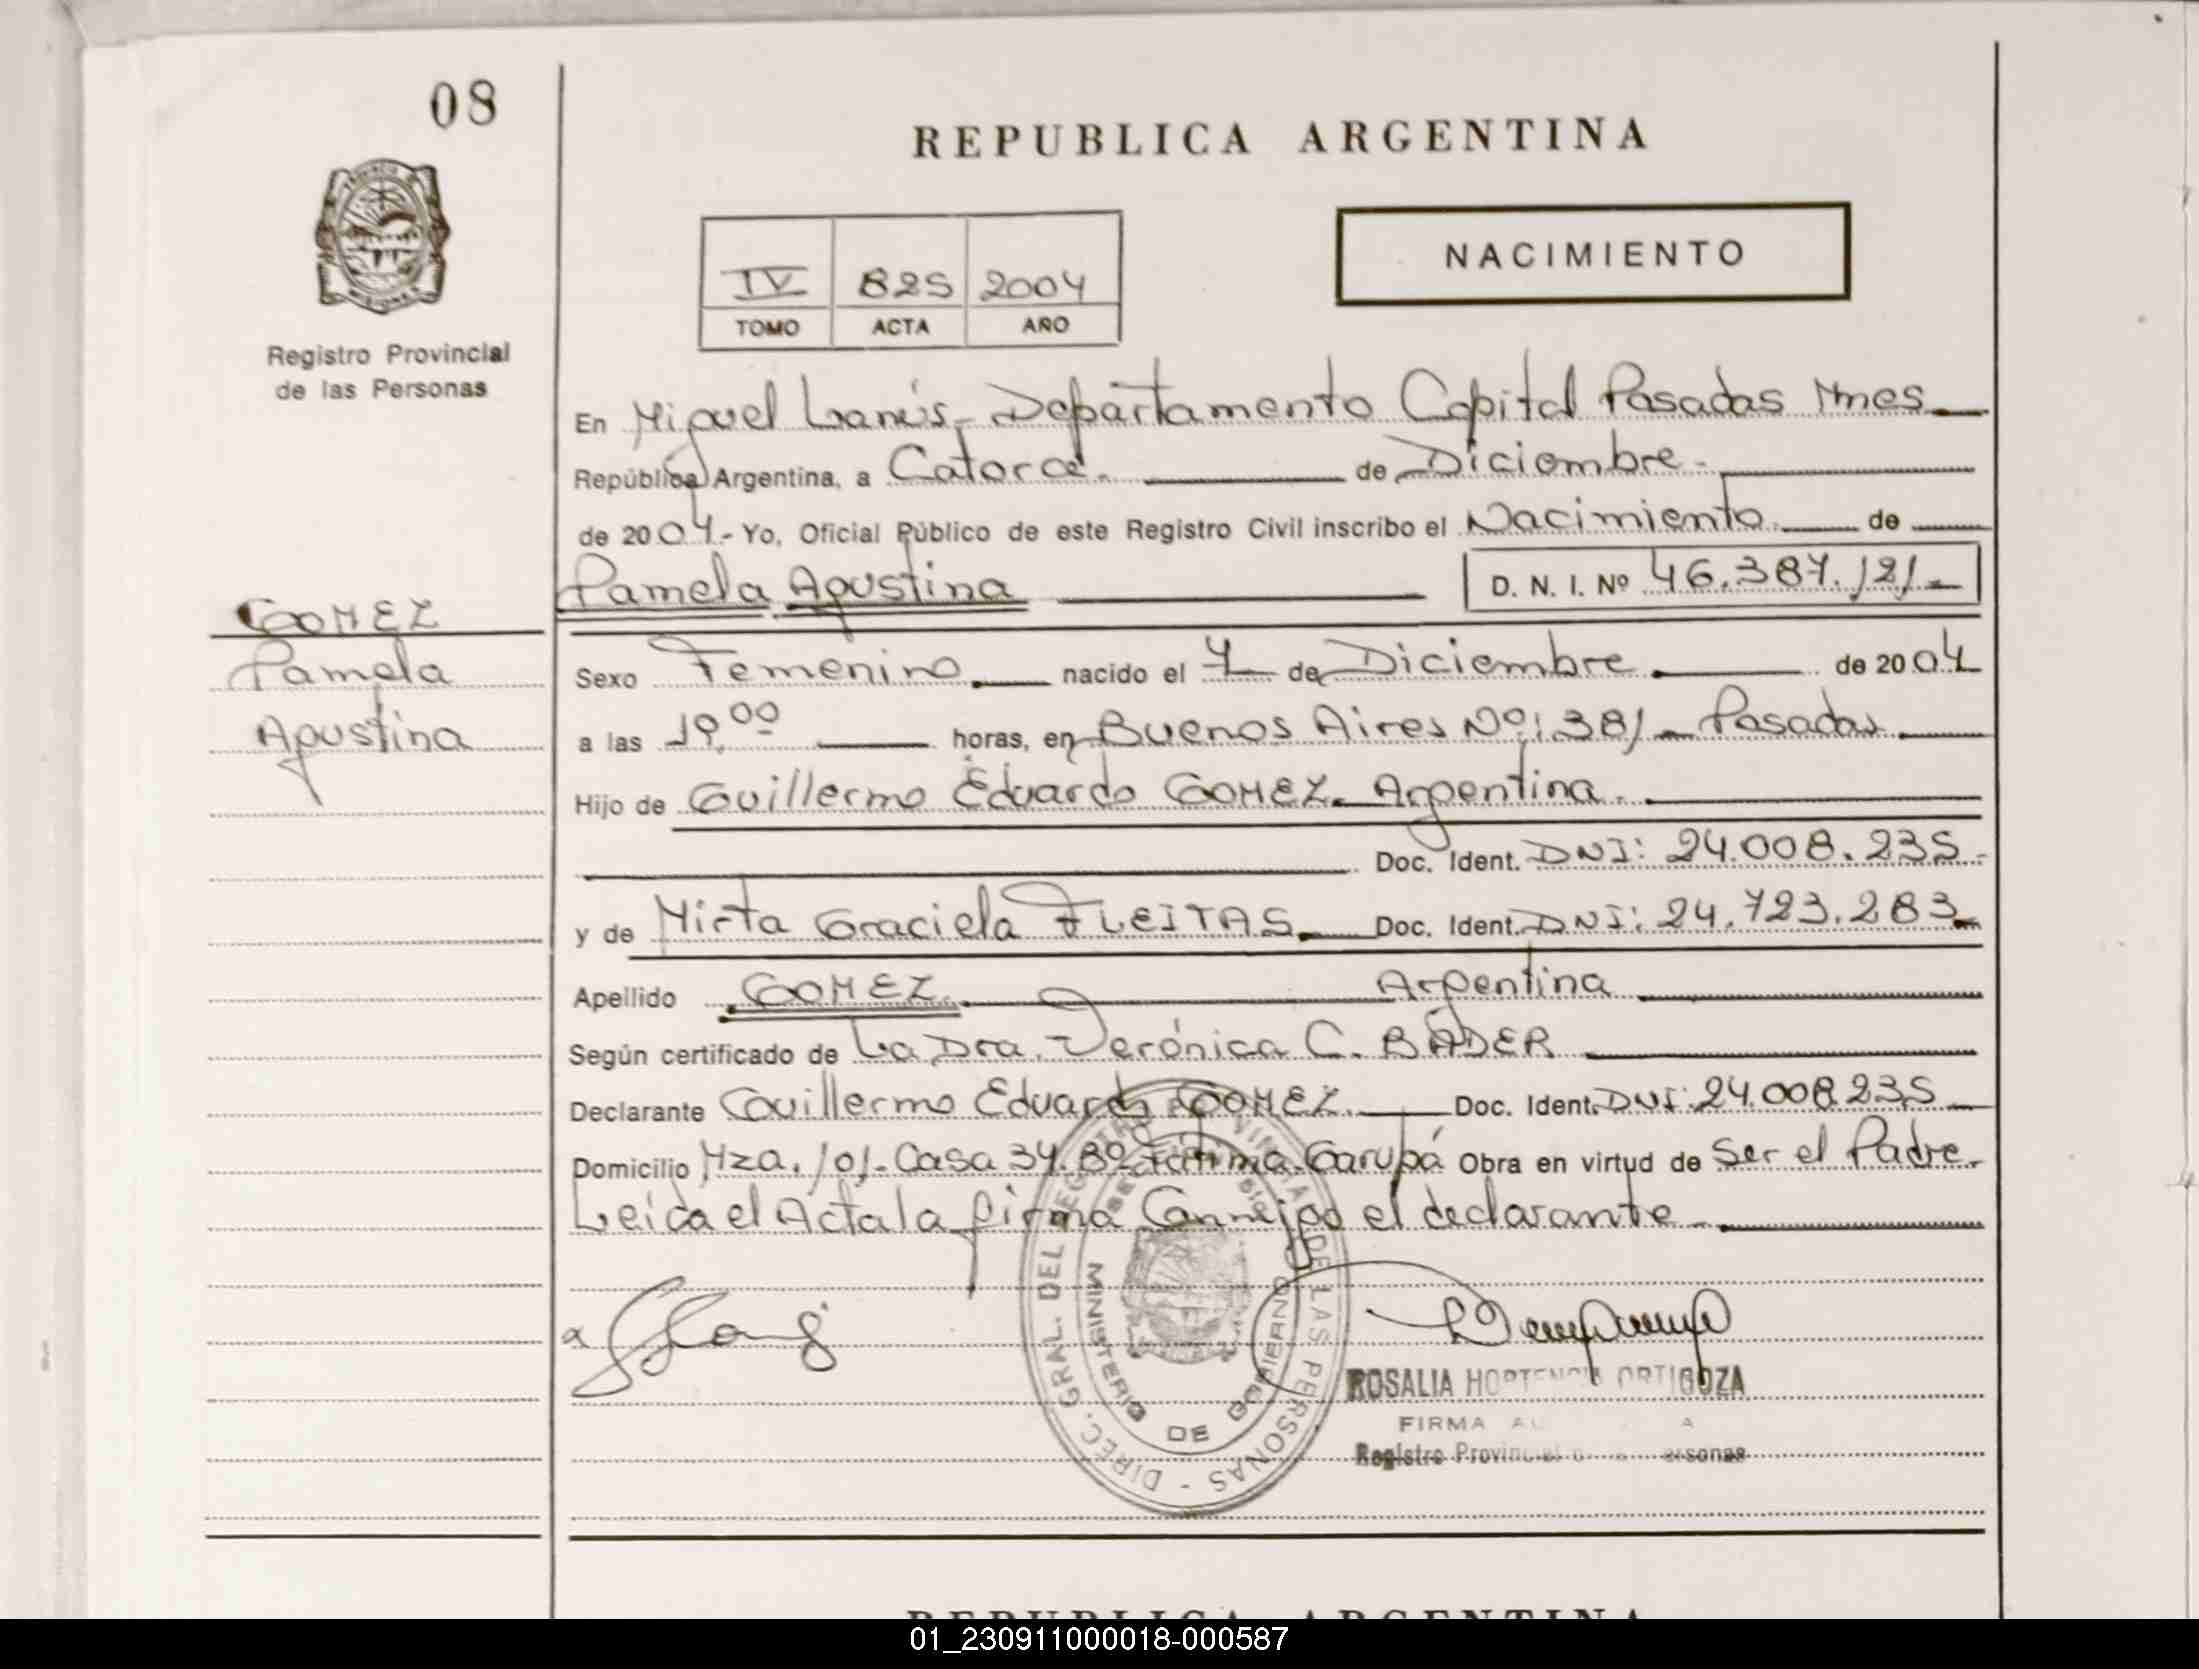 08
REPUBLICA ARGENTINA
NACIMIENTO
IV 825 2004
TOMO ACTA AÑO
Registro Provincial
de las Personas
En Miguel Lanús - Departamento Capital Posadas Mnes
República Argentina, a Catorce. de Diciembre.
de 2004.- Yo, Oficial Público de este Registro Civil inscribo el Nacimiento de
Pamela Agustina D. N. I. Nº 46.387.121.-
GOMEZ
Pamela
Agustina
Sexo Femenino. nacido el 4 de Diciembre. de 2004
a las 19,00 horas, en Buenos Aires Nº: 381 - Posadas
Hijo de Guillermo Eduardo GOMEZ. Argentina.
Doc. Ident. DNI: 24.008.235.
y de Mirta Graciela FLEITAS. Doc. Ident. DNI: 24.723.283.
Apellido GOMEZ. Argentina
Según certificado de La Dra. Verónica C. BADER
Declarante Guillermo Eduardo GOMEZ. Doc. Ident. DNI: 24.008.235
Domicilio Mza. 101. Casa 34. Bº Fátima. Garupá Obra en virtud de Ser el Padre.
Leída el Acta la firma Conmigo el declarante.
DIREC. GRAL. DEL REGISTRO PROVINCIAL DE LAS PERSONAS -
MINISTERIO DE GOBIERNO
ROSALIA HORTENCIA ORTIGOZA
FIRMA
Registro Provincial Personas
REPUBLICA ARGENTINA
01_230911000018-000587